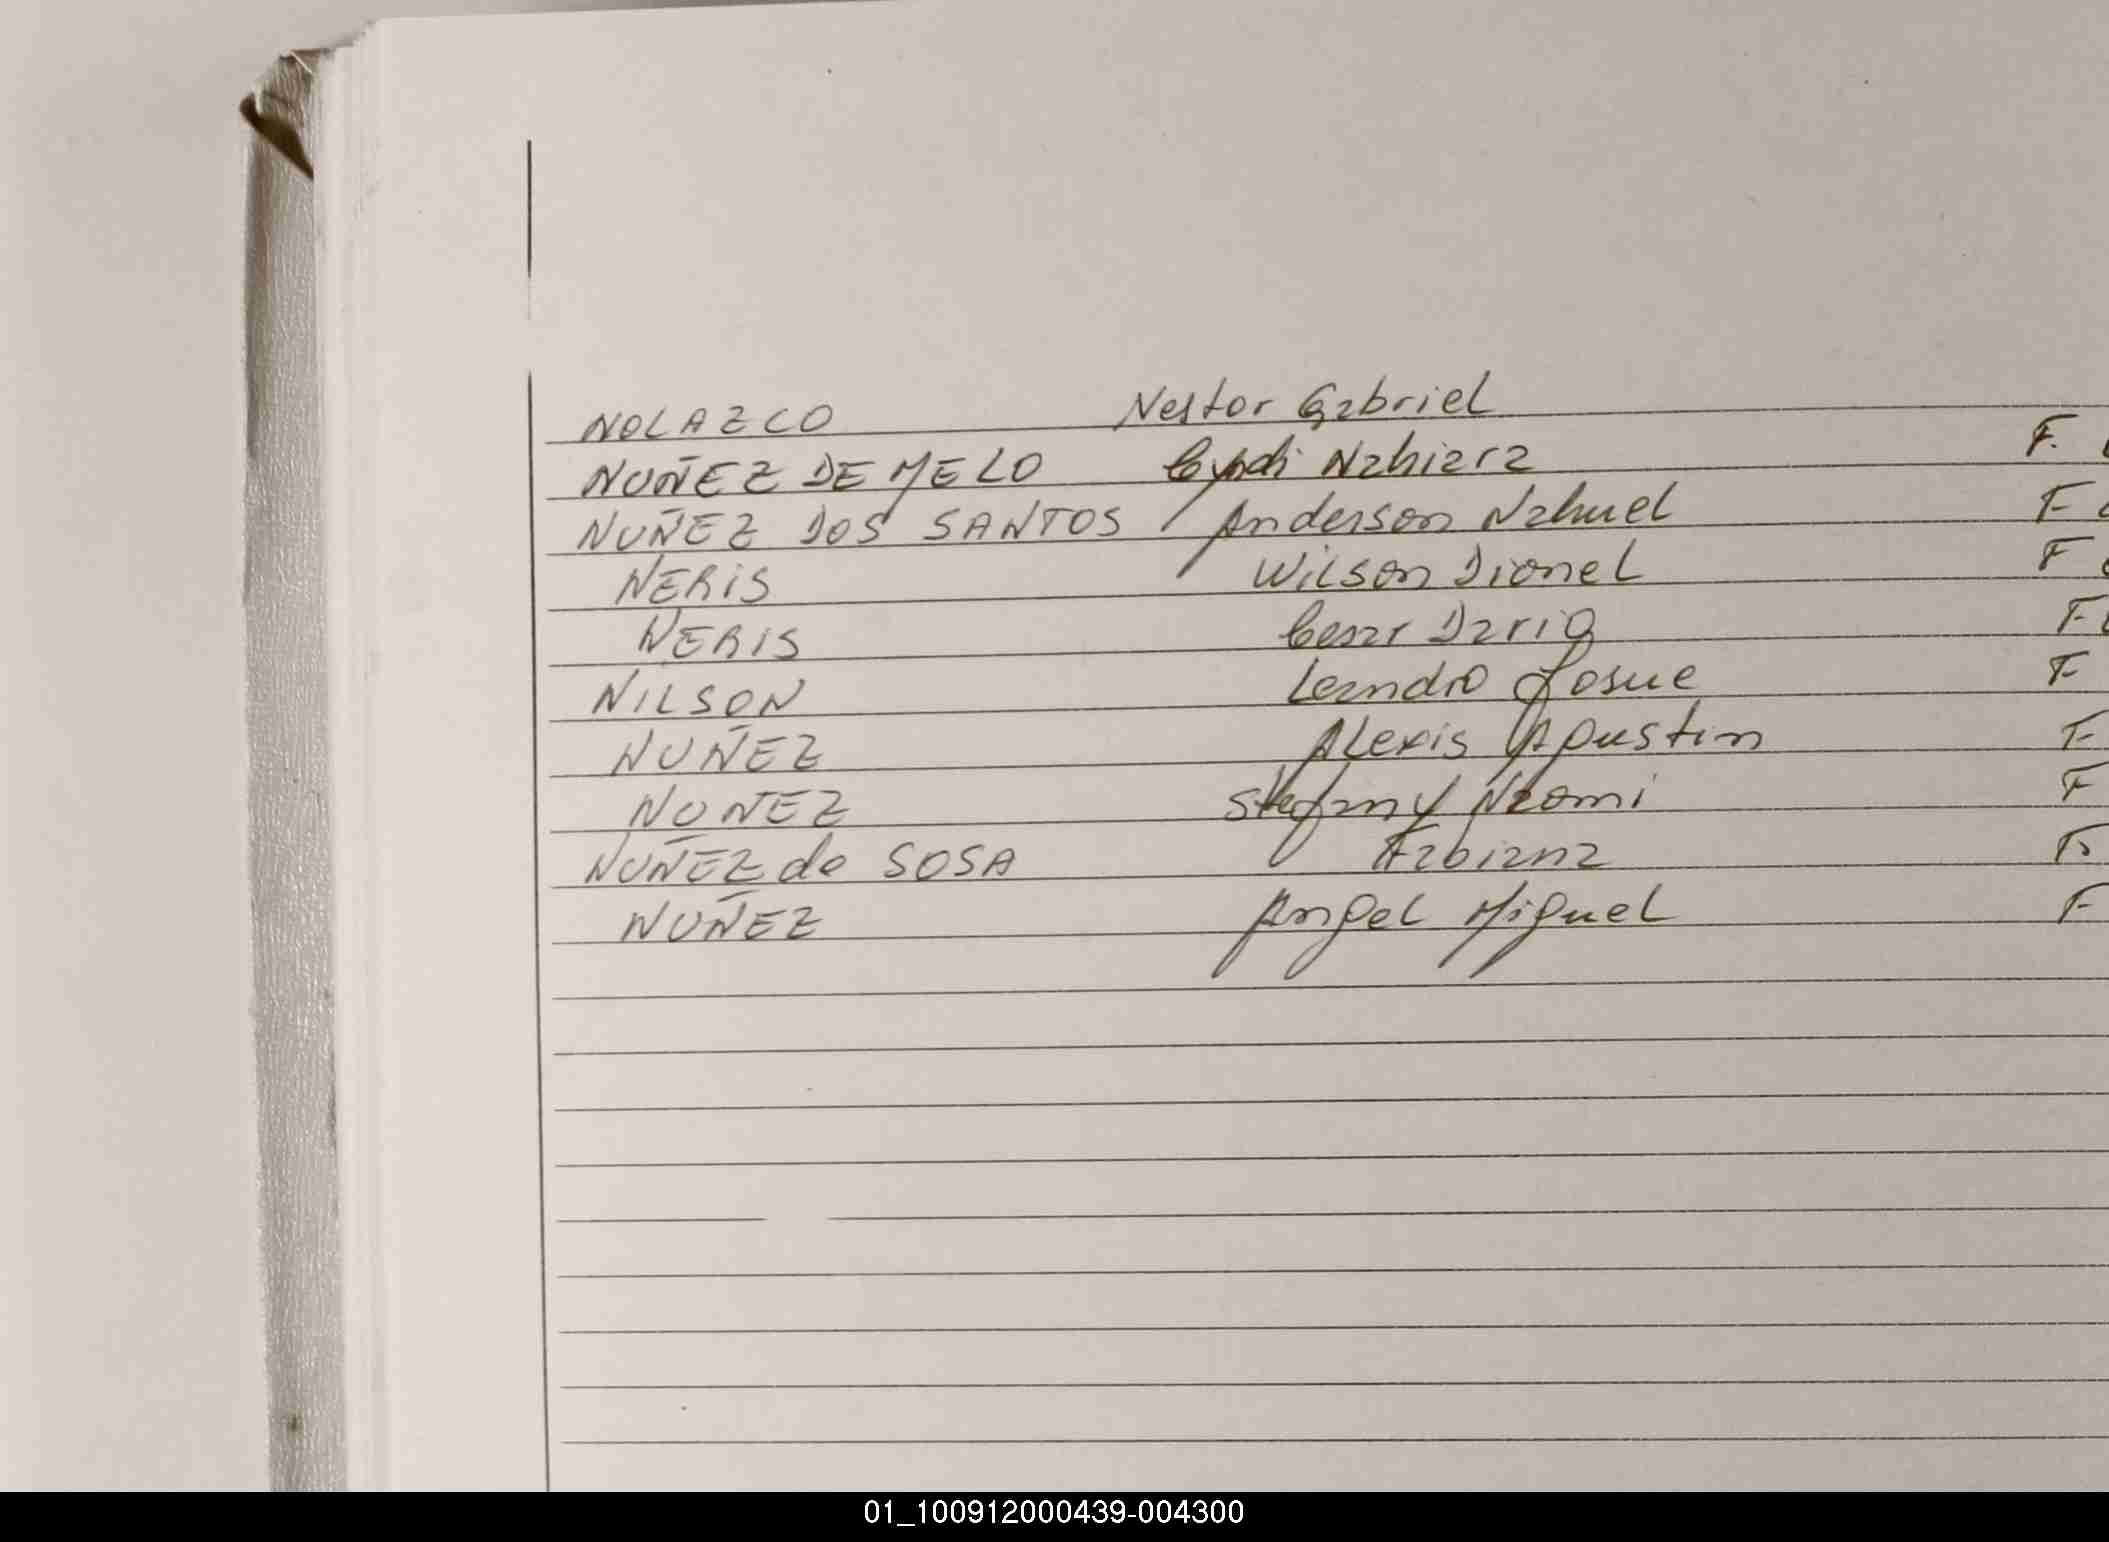 NOLAZCO Nestor Gabriel
NUÑEZ DE MELO Cyndi Nahiara F.
NUÑEZ DOS SANTOS Anderson Nahuel F
NERIS Wilson Dionel F
NERIS Cesar Dario F
NILSON Leandro Josue F
NUÑEZ Alexis Agustin F
NUÑEZ Stefany Naomi F
NUÑEZ de SOSA Fabiana F
NUÑEZ Angel Miguel F
01_100912000439-004300